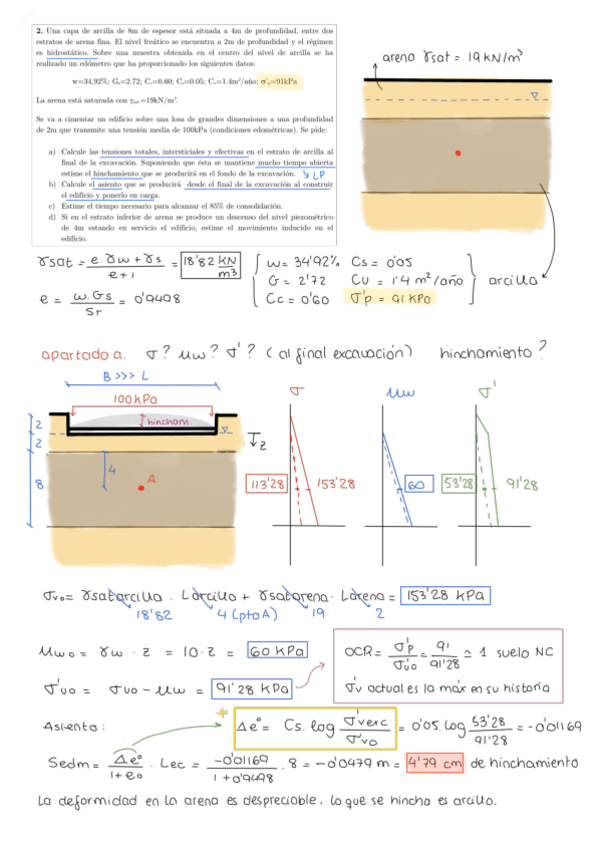 2. Una capa de arcilla de 8m de espesor está situada a 4m de profundidad, entre dos
estratos de arena fina. El nivel freático se encuentra a 2m de profundidad y el régimen
es hidrostático. Sobre una muestra obtenida en el centro del nivel de arcilla se ha
realizado un edómetro que ha proporcionado los siguientes datos:
w=34,92%; Gs=2.72; Cc=0.60; Cs=0.05; Cv=1.4m²/año; σ'p=91kPa
La arena está saturada con γsat=19kN/m³.
Se va a cimentar un edificio sobre una losa de grandes dimensiones a una profundidad
de 2m que transmite una tensión media de 100kPa (condiciones edométricas). Se pide:
a) Calcule las tensiones totales, intersticiales y efectivas en el estrato de arcilla al
final de la excavación. Suponiendo que ésta se mantiene mucho tiempo abierta
estime el hinchamiento que se producirá en el fondo de la excavación. ↘ LP
b) Calcule el asiento que se producirá desde el final de la excavación al construir
el edificio y ponerlo en carga.
c) Estime el tiempo necesario para alcanzar el 85% de consolidación.
d) Si en el estrato inferior de arena se produce un descenso del nivel piezométrico
de 4m estando en servicio el edificio, estime el movimiento inducido en el
edificio.
arena γsat = 19 kN/m³
γsat = e·γw + γs / e+1 = 18'82 kN/m³
e = w·Gs / Sr = 0'9498
w = 34'92% Cs = 0'05
G = 2'72 Cv = 1'4 m²/año
Cc = 0'60 σ'p = 91 kPa
arcilla
apartado a. σ? μw? σ'? (al final excavación) hinchamiento?
B >>> L
100kPa
hincham.
2
2
8
4
A
z
σ
113'28
153'28
μw
60
σ'
53'28
91'28
σvo = γsatarcilla · Larcilla + γsatarena · Larena = 153'28 kPa
18'82 4 (pto A) 19 2
μwo = γw · z = 10·z = 60 kPa
σ'vo = σvo - μw = 91'28 kPa
OCR = σ'p / σ'vo = 91 / 91'28 ≃ 1 suelo NC
σ'v actual es la máx en su historia
Asiento:
* Δe° = Cs. log σ'vexc / σ'vo = 0'05. log 53'28 / 91'28 = -0'01169
Sedm = Δe° / 1+e₀ · Lec = -0'01169 / 1+0'9498 · 8 = -0'0479 m = 4'79 cm de hinchamiento
La deformidad en la arena es despreciable, lo que se hincha es arcilla.